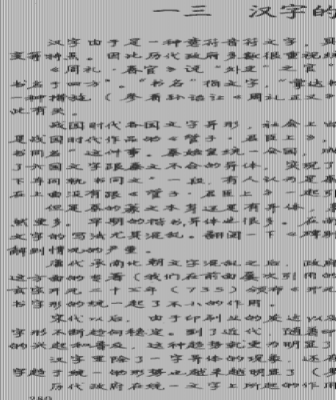 一三 汉字的
汉字由于是一种意符音符文字,
变等特点。因此历代政府多数很重视
《周礼·春官》说“外史”之官
书名于四方”。“书名”指文字,“掌达
一种措施(参看孙诒让《周礼正义》
此有关。
战国时代各国文字异形,社会上
是战国时代作品的《管子·君臣上》
书同名”这种事。秦始皇统一全国,
了六国文字跟秦文不合的异体,实现了
下车同轨书同文”一段,有人认为是秦
在上面没有跟《管子·君臣上》一起
但是秦的篆文本身还是有异体,隶
就更多。早期的楷书异体也很多。在
文字的写法尤其混乱。翻阅一下《碑别
解到情况的严重。
唐代承南北朝文字混乱之后,政府
这方面的专著(我们在前面屡次引用的
玄宗开元二十三年(735)颁布《开元
书字形的统一起了不小的作用。
宋代以后,由于印刷业的发达以及
字形不断趋向稳定。到了近代,随着
的兴起和普及,这种趋势就更为明显了
汉字里除了一字异体的现象,还有
字趋于统一的形势也越来越明显了
历代政府在统一文字上所起的作用